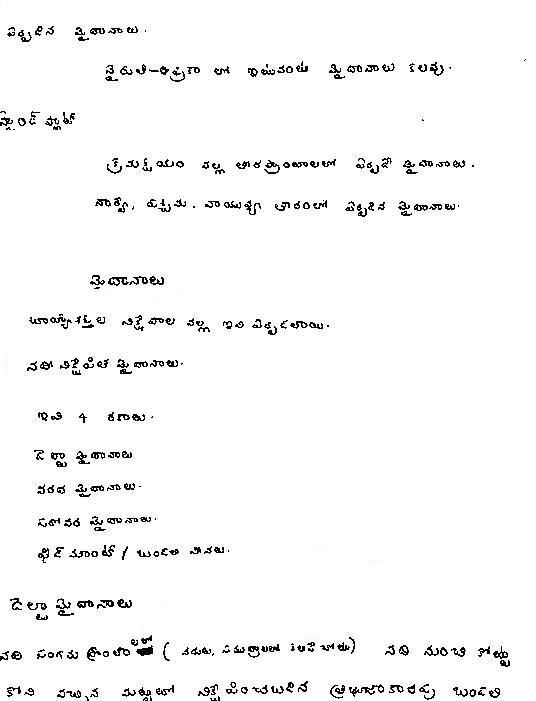 ఏర్పడిన మైదానాలు.
నైరుతి-ఆఫ్రికా లో ఇటువంటి మైదానాలు కలవు.
స్ట్రాండ్ ఫ్లాట్
క్రమక్షయం వల్ల తీరప్రాంతాలలో ఏర్పడే మైదానాలు.
నార్వే, పశ్చిమ. వాయువ్య తీరంలో ఏర్పడిన మైదానాలు.
మైదానాలు
బాహ్యశక్తుల నిక్షేపాల వల్ల ఇవి ఏర్పడతాయి.
నదీ నిక్షేపిత మైదానాలు.
ఇవి 4 రకాలు.
డెల్టా మైదానాలు
వరద మైదానాలు.
సరోవర మైదానాలు.
ఫీడ్ మాంట్ / బురదలి
డెల్టా మైదానాలు
నది సంగమ ప్రాంతాలలో ( నదులు, సముద్రాలలో కలిసే చోటు) నది నుంచి కొట్టు
కొని వచ్చిన మట్టితో నిక్షేపించబడిన త్రిభుజాకారపు